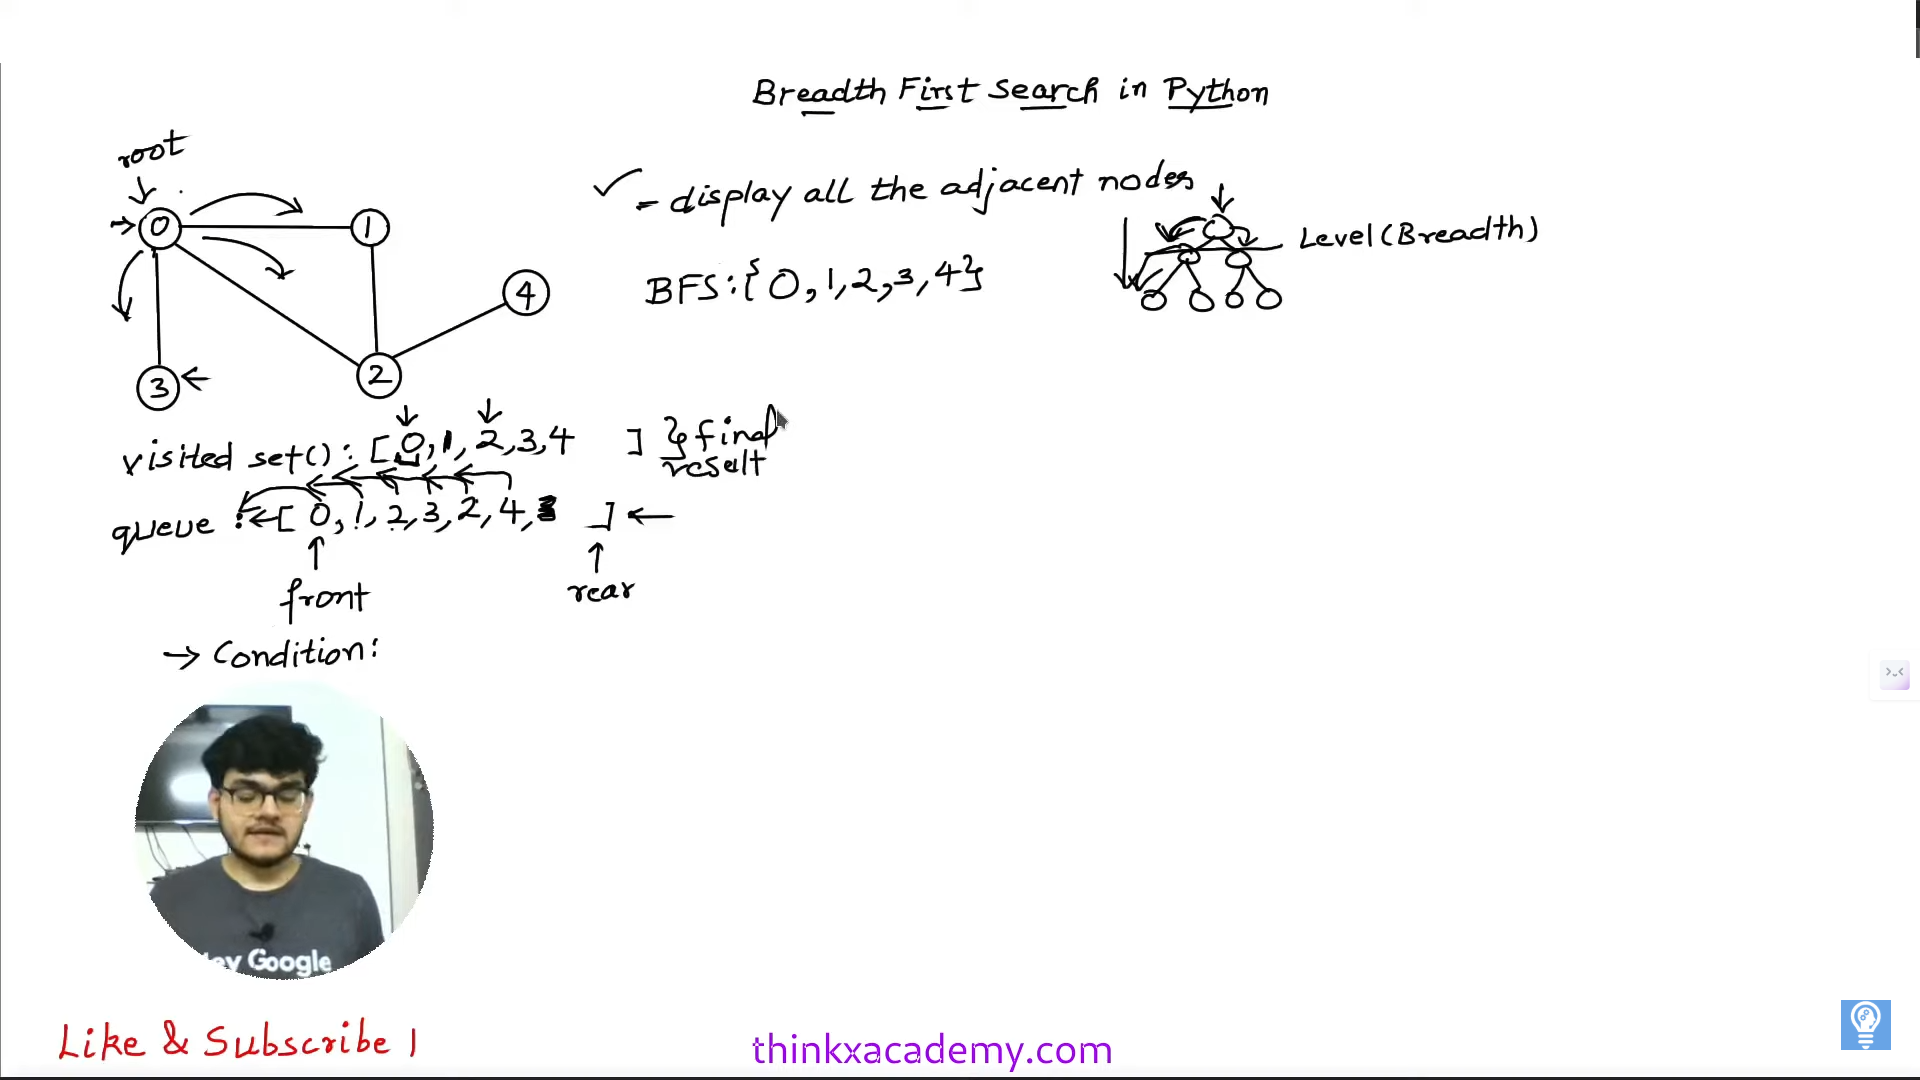 Breadth First Search in Python
root
- display all the adjacent nodes
0
1
Level(Breadth)
BFS:{0,1,2,3,4}
4
3
2
visited set(): [0,1,2,3,4 ] } final
result
queue : [0,1,2,3,2,4, ]
front
rear
→ Condition:
ey Google
Like & Subscribe !
thinkxacademy.com